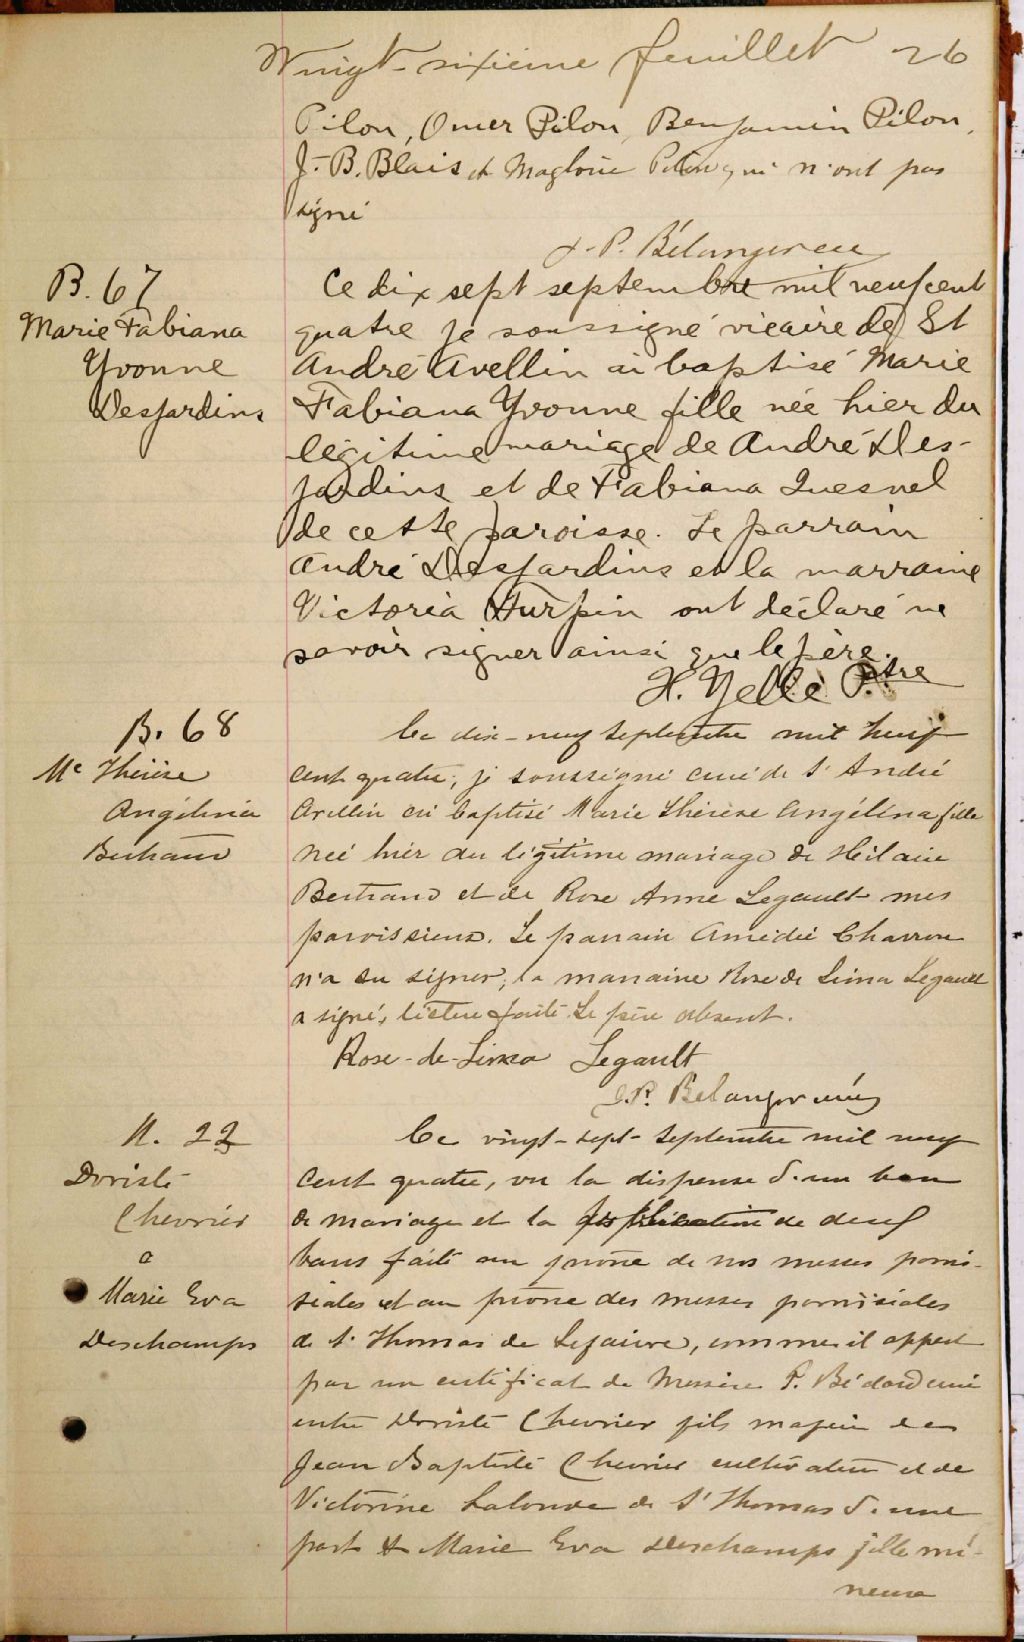 Vingt-sixième feuillet 26
Pilon, Omer Pilon, Benjamin Pilon,
J.-B. Blais et Magloire Pilon qui n'ont pas
signé
J.-P. Bélanger
B. 67
Marie Fabiana
Yvonne
Desjardins
Ce dix sept septembre mil neuf cent
quatre je soussigné vicaire de St
André Avellin ai baptisé Marie
Fabiana Yvonne fille née hier du
légitime mariage de André Des-
jardins et de Fabiana Quesnel
de cette paroisse. Le parrain
André Desjardins et la marraine
Victoria Turpin ont déclaré ne
savoir signer ainsi que le père.
H. Yelle Ptre
B. 68
Me Thérèse
Angélina
Bertrand
Ce dix-neuf septembre mil neuf
cent quatre, je soussigné curé de St André
Avellin ai baptisé Marie Thérèse Angélina fille
née hier du légitime mariage de Hilaire
Bertrand et de Rose Anne Legault mes
paroissiens. Le parrain Amédée Charron
n'a su signer, la marraine Rose de Lima Legault
a signé, lecture faite. Le père absent.
Rose-de-Lima Legault
J.P. Bélanger curé
M. 22
Doristé
Chevrier
a
Marie Eva
Deschamps
Ce vingt-sept septembre mil neuf
cent quatre, vu la dispense d'un ban
de mariage et la publication de deux
bans faite au prône de nos messes parois-
siales et au prône des messes paroissiales
de St Thomas de Lefaivre, comme il appert
par un certificat de Messire P. Bédard curé
entre Doristé Chevrier fils majeur de
Jean Baptiste Chevrier cultivateur et de
Victorine Lalonde de St Thomas d'une
part et Marie Eva Deschamps fille mi-
neure